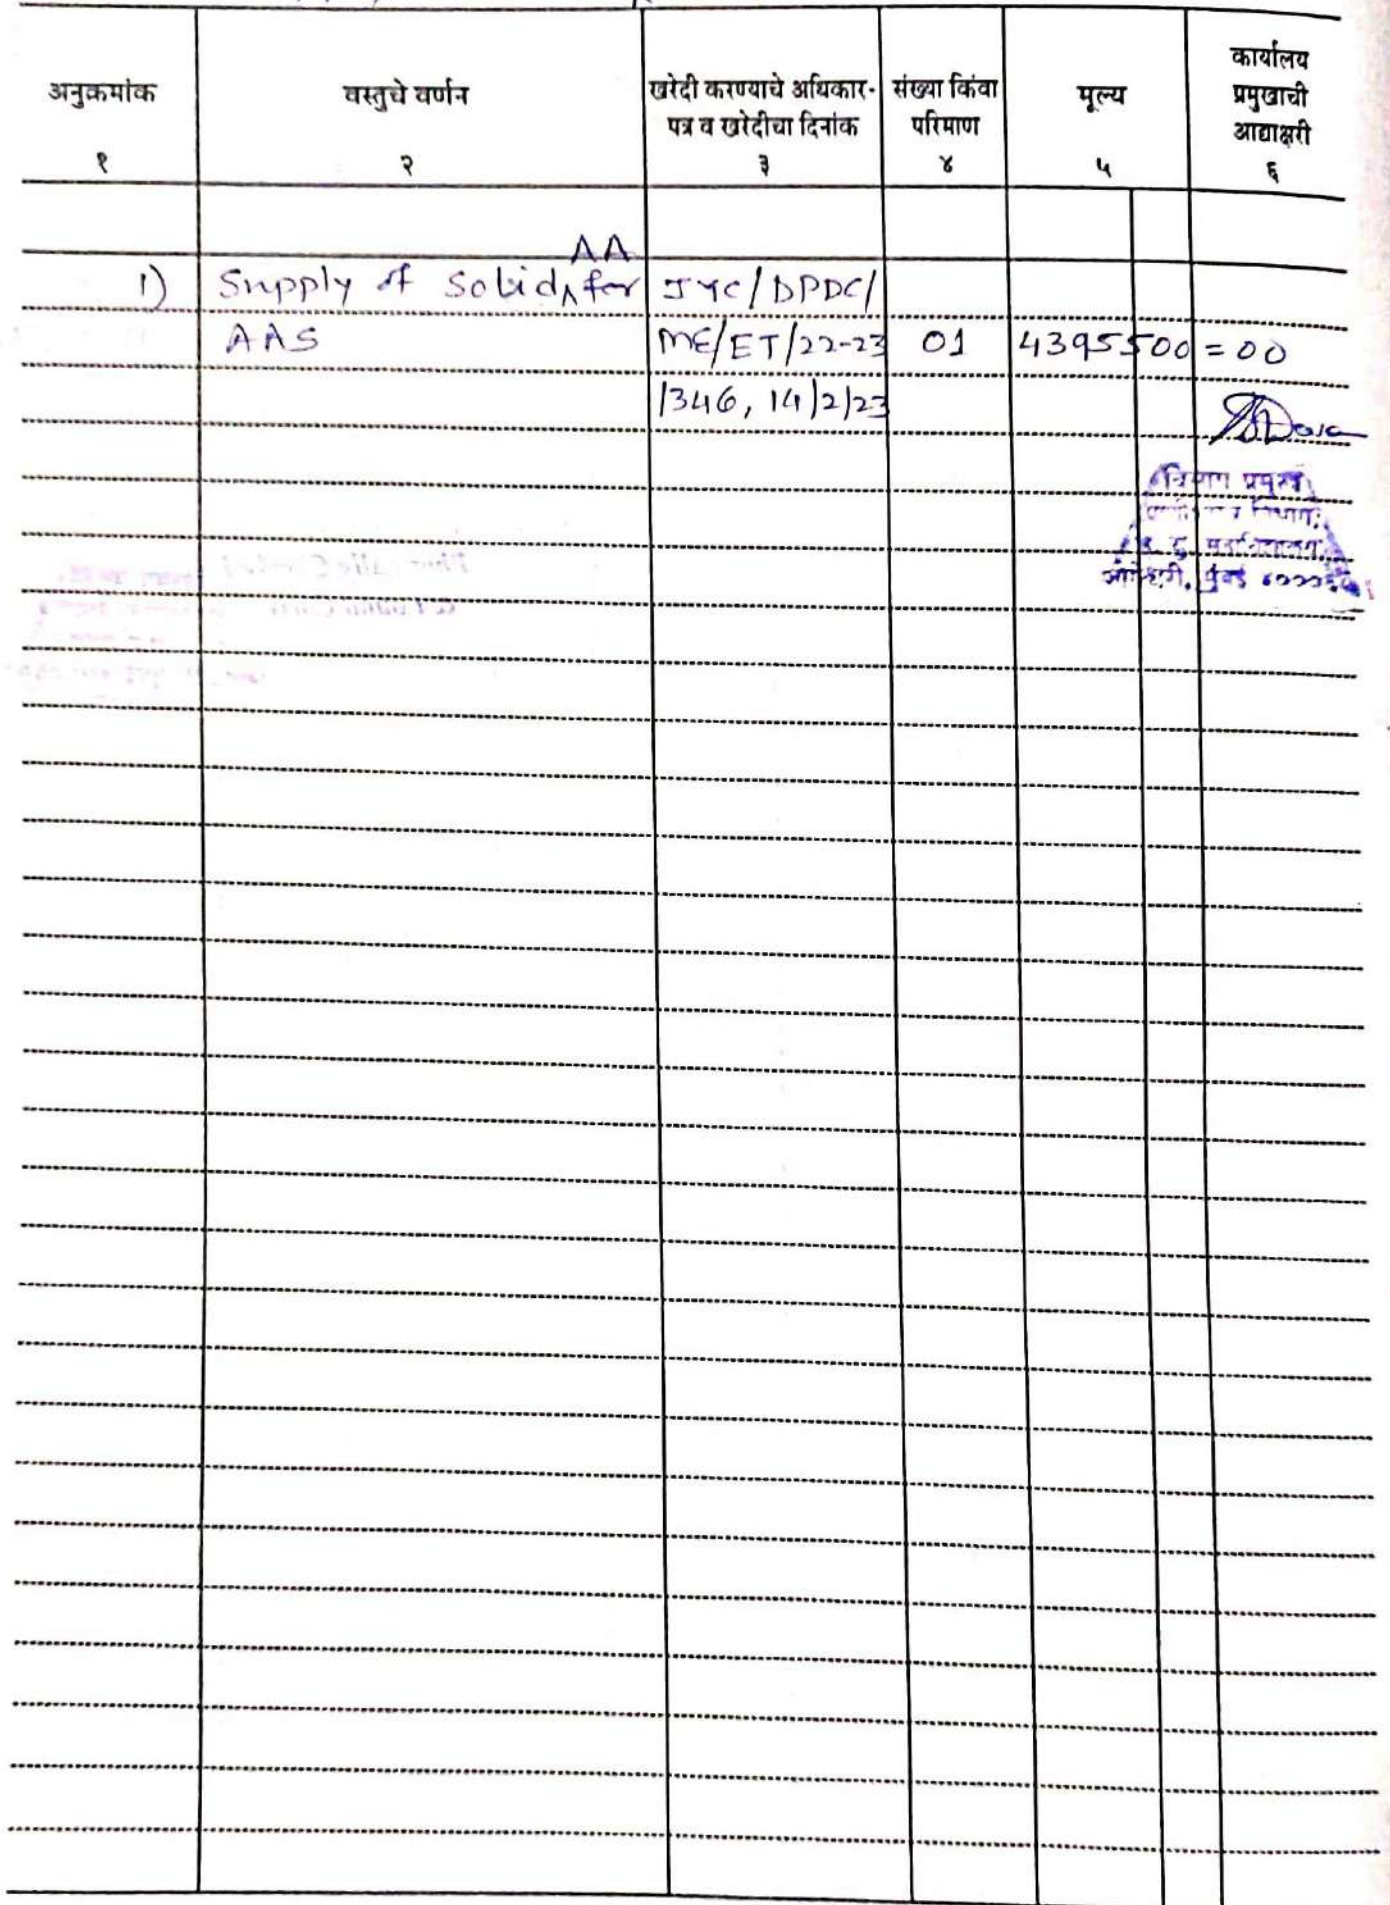 अनुक्रमांक
१
वस्तुचे वर्णन
२
खरेदी करण्याचे अधिकार-
पत्र व खरेदीचा दिनांक
३
संख्या किंवा
परिमाण
४
मूल्य
५
कार्यालय
प्रमुखाची
आद्याक्षरी
६
AA
1) Supply of Solid ^ for
AAS
JYC/DPDC/
ME/ET/22-23
/346, 14/2/23
01
4395500=00
विभाग प्रमुख
विभाग,
महाविद्यालय,
जोगेश्वरी, मुंबई